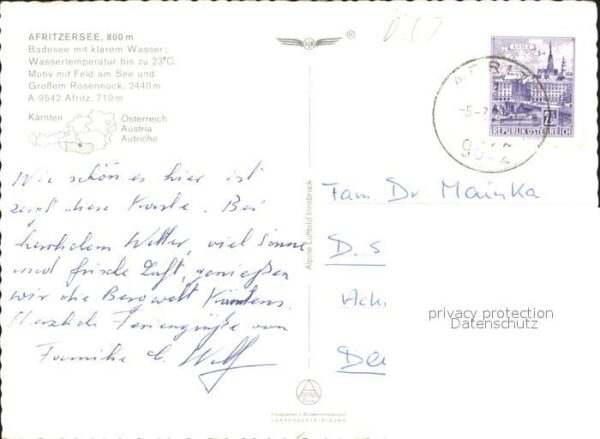 AFRITZERSEE, 800 m
Badesee mit klarem Wasser;
Wassertemperatur bis zu 23°C.
Motiv mit Feld am See und
Großem Rosennock, 2440 m
A-9542 Afritz, 710 m
Kärnten
Österreich
Austria
Autriche
®
LINZ
AFRITZ
REPUBLIK ÖSTERREICH
Wie schön es hier ist
zeigt diese Karte. Bei
herrlichem Wetter, viel Sonne
und frische Luft, genießen
wir die Bergwelt Kärntens.
Herzliche Feriengrüße von
Familie C. Wolf
Alpine Luftbild Innsbruck
Fam Dr. Mainka
D. S
Ack
De
privacy protection
Datenschutz
LANDESVERTEIDIGUNG